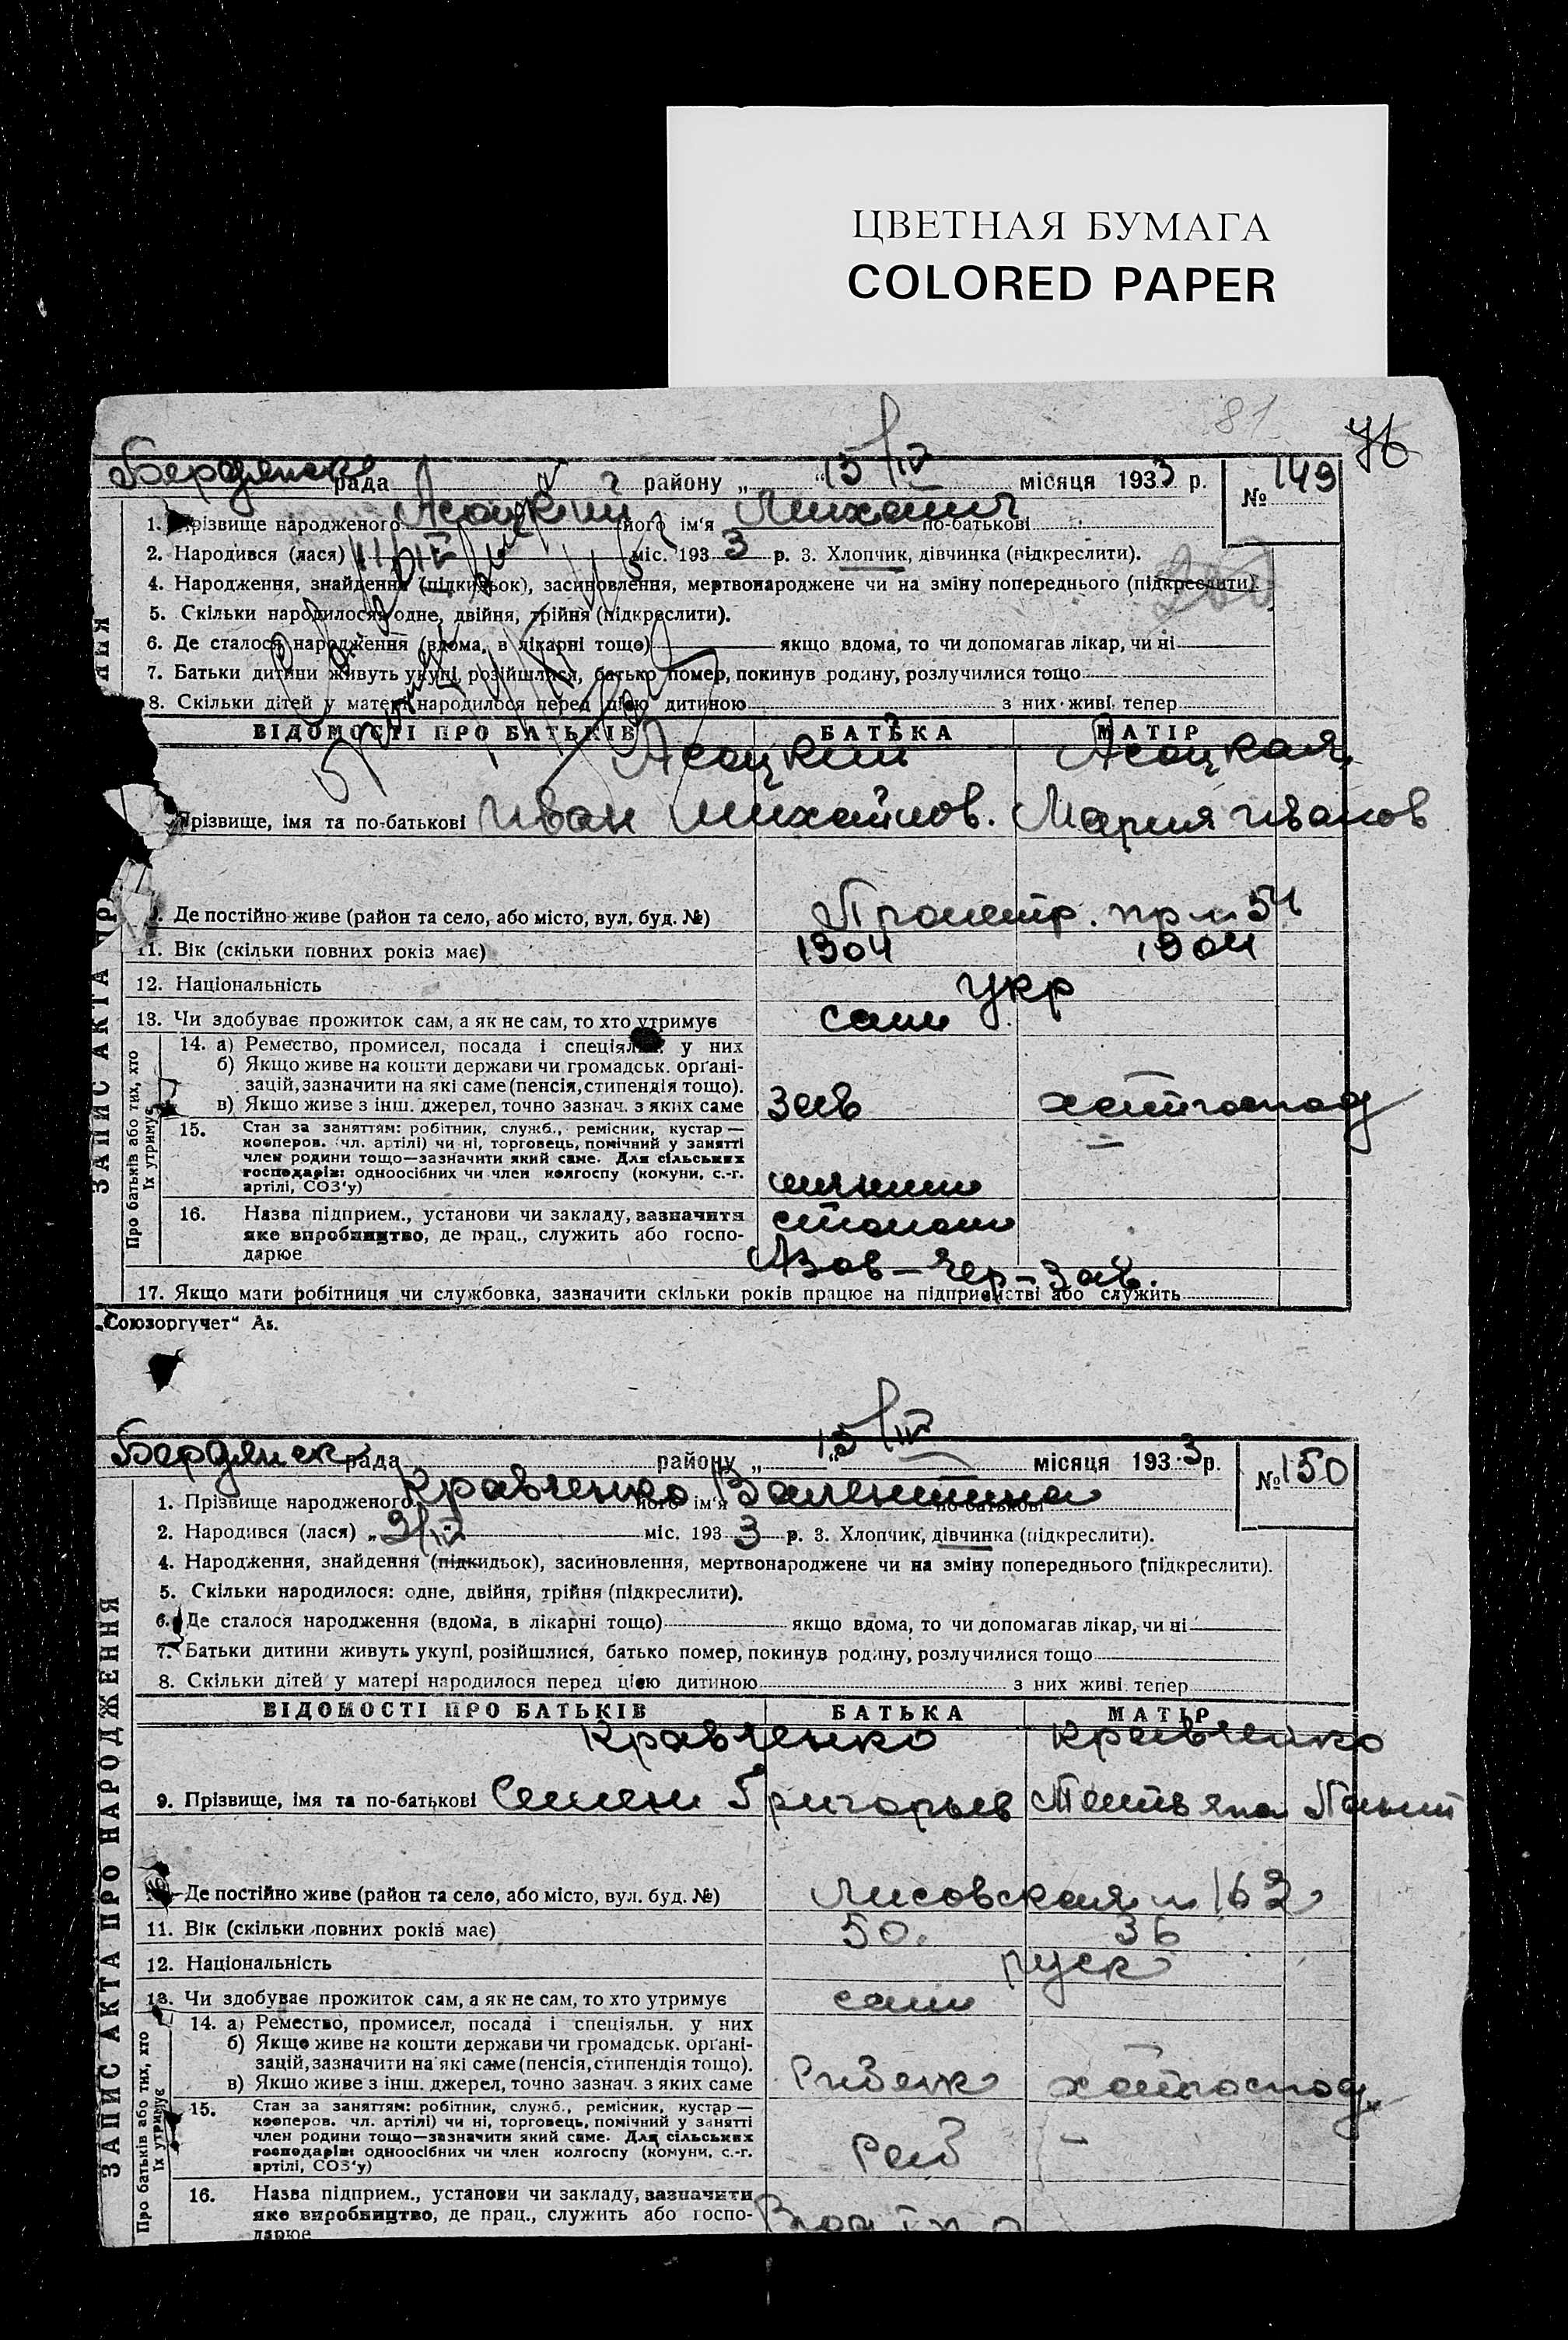 ЦВЕТНАЯ БУМАГА
COLORED PAPER
81
76
Бердянськ рада району „15/IV“ місяця 1933 р. № 149
1. Прізвище народженого Асоцкий його ім'я Михаил по-батькові
2. Народився (лася) 11/IV міс. 1933 р. 3. Хлопчик, дівчинка (підкреслити).
4. Народження, знайдення (підкидьок), засиновлення, мертвонароджене чи на зміну попереднього (підкреслити)
5. Скільки народилося: одне, двійня, трійня (підкреслити).
6. Де сталося народження (вдома, в лікарні тощо) якщо вдома, то чи допомагав лікар, чи ні
7. Батьки дитини живуть укупі, розійшлися, батько помер, покинув родину, розлучилися тощо
8. Скільки дітей у матері народилося перед цією дитиною з них живі тепер
ВІДОМОСТІ ПРО БАТЬКІВ БАТЬКА МАТІР
Асоцкий Асоцкая
Прізвище, імя та по-батькові Иван Михайлов. Мария Иванов
Де постійно живе (район та село, або місто, вул. буд. №) пр 54
11. Вік (скільки повних років має) 1904 1904
12. Національність Укр
13. Чи здобуває прожиток сам, а як не сам, то хто утримує сам
14. а) Ремество, промисел, посада і спеціяльн. у них
б) Якщо живе на кошти держави чи громадськ. орґані-
зацій, зазначити на які саме (пенсія, стипендія тощо).
в) Якщо живе з інш. джерел, точно зазнач. з яких саме Зав хатгоспод
15. Стан за заняттям: робітник, служб., ремісник, кустар —
кооперов. чл. артілі) чи ні, торговець, помічний у занятті
член родини тощо—зазначити який саме. Для сільських
господарів: одноосібних чи член колгоспу (комуни, с.-г.
артілі, СОЗ'у)
16. Назва підприєм., установи чи закладу, зазначити
яке виробництво, де прац., служить або госпо-
дарює Азов-Чер-Зав.
17. Якщо мати робітниця чи службовка, зазначити скільки років працює на підприємстві або служить
„Союзоргучет“
ЗАПИС АКТА ПРО
Про батьків або тих, хто їх утримує
Бердянск рада району „15/IV“ місяця 1933 р. № 150
1. Прізвище народженого Кравченко його ім'я Валентина по-батькові
2. Народився (лася) „9/IV міс. 1933 р. 3. Хлопчик, дівчинка (підкреслити).
4. Народження, знайдення (підкидьок), засиновлення, мертвонароджене чи на зміну попереднього (підкреслити).
5. Скільки народилося: одне, двійня, трійня (підкреслити).
6. Де сталося народження (вдома, в лікарні тощо) якщо вдома, то чи допомагав лікар, чи ні
7. Батьки дитини живуть укупі, розійшлися, батько помер, покинув родину, розлучилися тощо
8. Скільки дітей у матері народилося перед цією дитиною з них живі тепер
ВІДОМОСТІ ПРО БАТЬКІВ БАТЬКА МАТІР
Кравченко Кравченко
9. Прізвище, імя та по-батькові Семен Григорьев Татьяна
Де постійно живе (район та село, або місто, вул. буд. №) Лисовская 163
11. Вік (скільки повних років має) 50. 36
12. Національність руск
13. Чи здобуває прожиток сам, а як не сам, то хто утримує сам
14. а) Ремество, промисел, посада і спеціяльн. у них
б) Якщо живе на кошти держави чи громадськ. орґані-
зацій, зазначити на які саме (пенсія, стипендія тощо).
в) Якщо живе з інш. джерел, точно зазнач. з яких саме хатгоспод
15. Стан за заняттям: робітник, служб., ремісник, кустар —
кооперов. чл. артілі) чи ні, торговець, помічний у занятті
член родини тощо—зазначити який саме. Для сільських
господарів: одноосібних чи член колгоспу (комуни, с.-г.
артілі, СОЗ'у) Роб
16. Назва підприєм., установи чи закладу, зазначити
яке виробництво, де прац., служить або госпо-
дарює
ЗАПИС АКТА ПРО НАРОДЖЕННЯ
Про батьків або тих, хто їх утримує